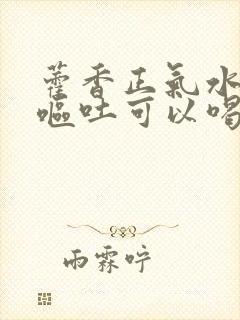 藿香正氣水
嘔吐可以喝
雨霖咛